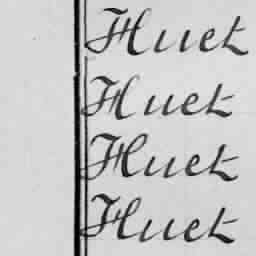 Huet
Huet
Huet
Huet